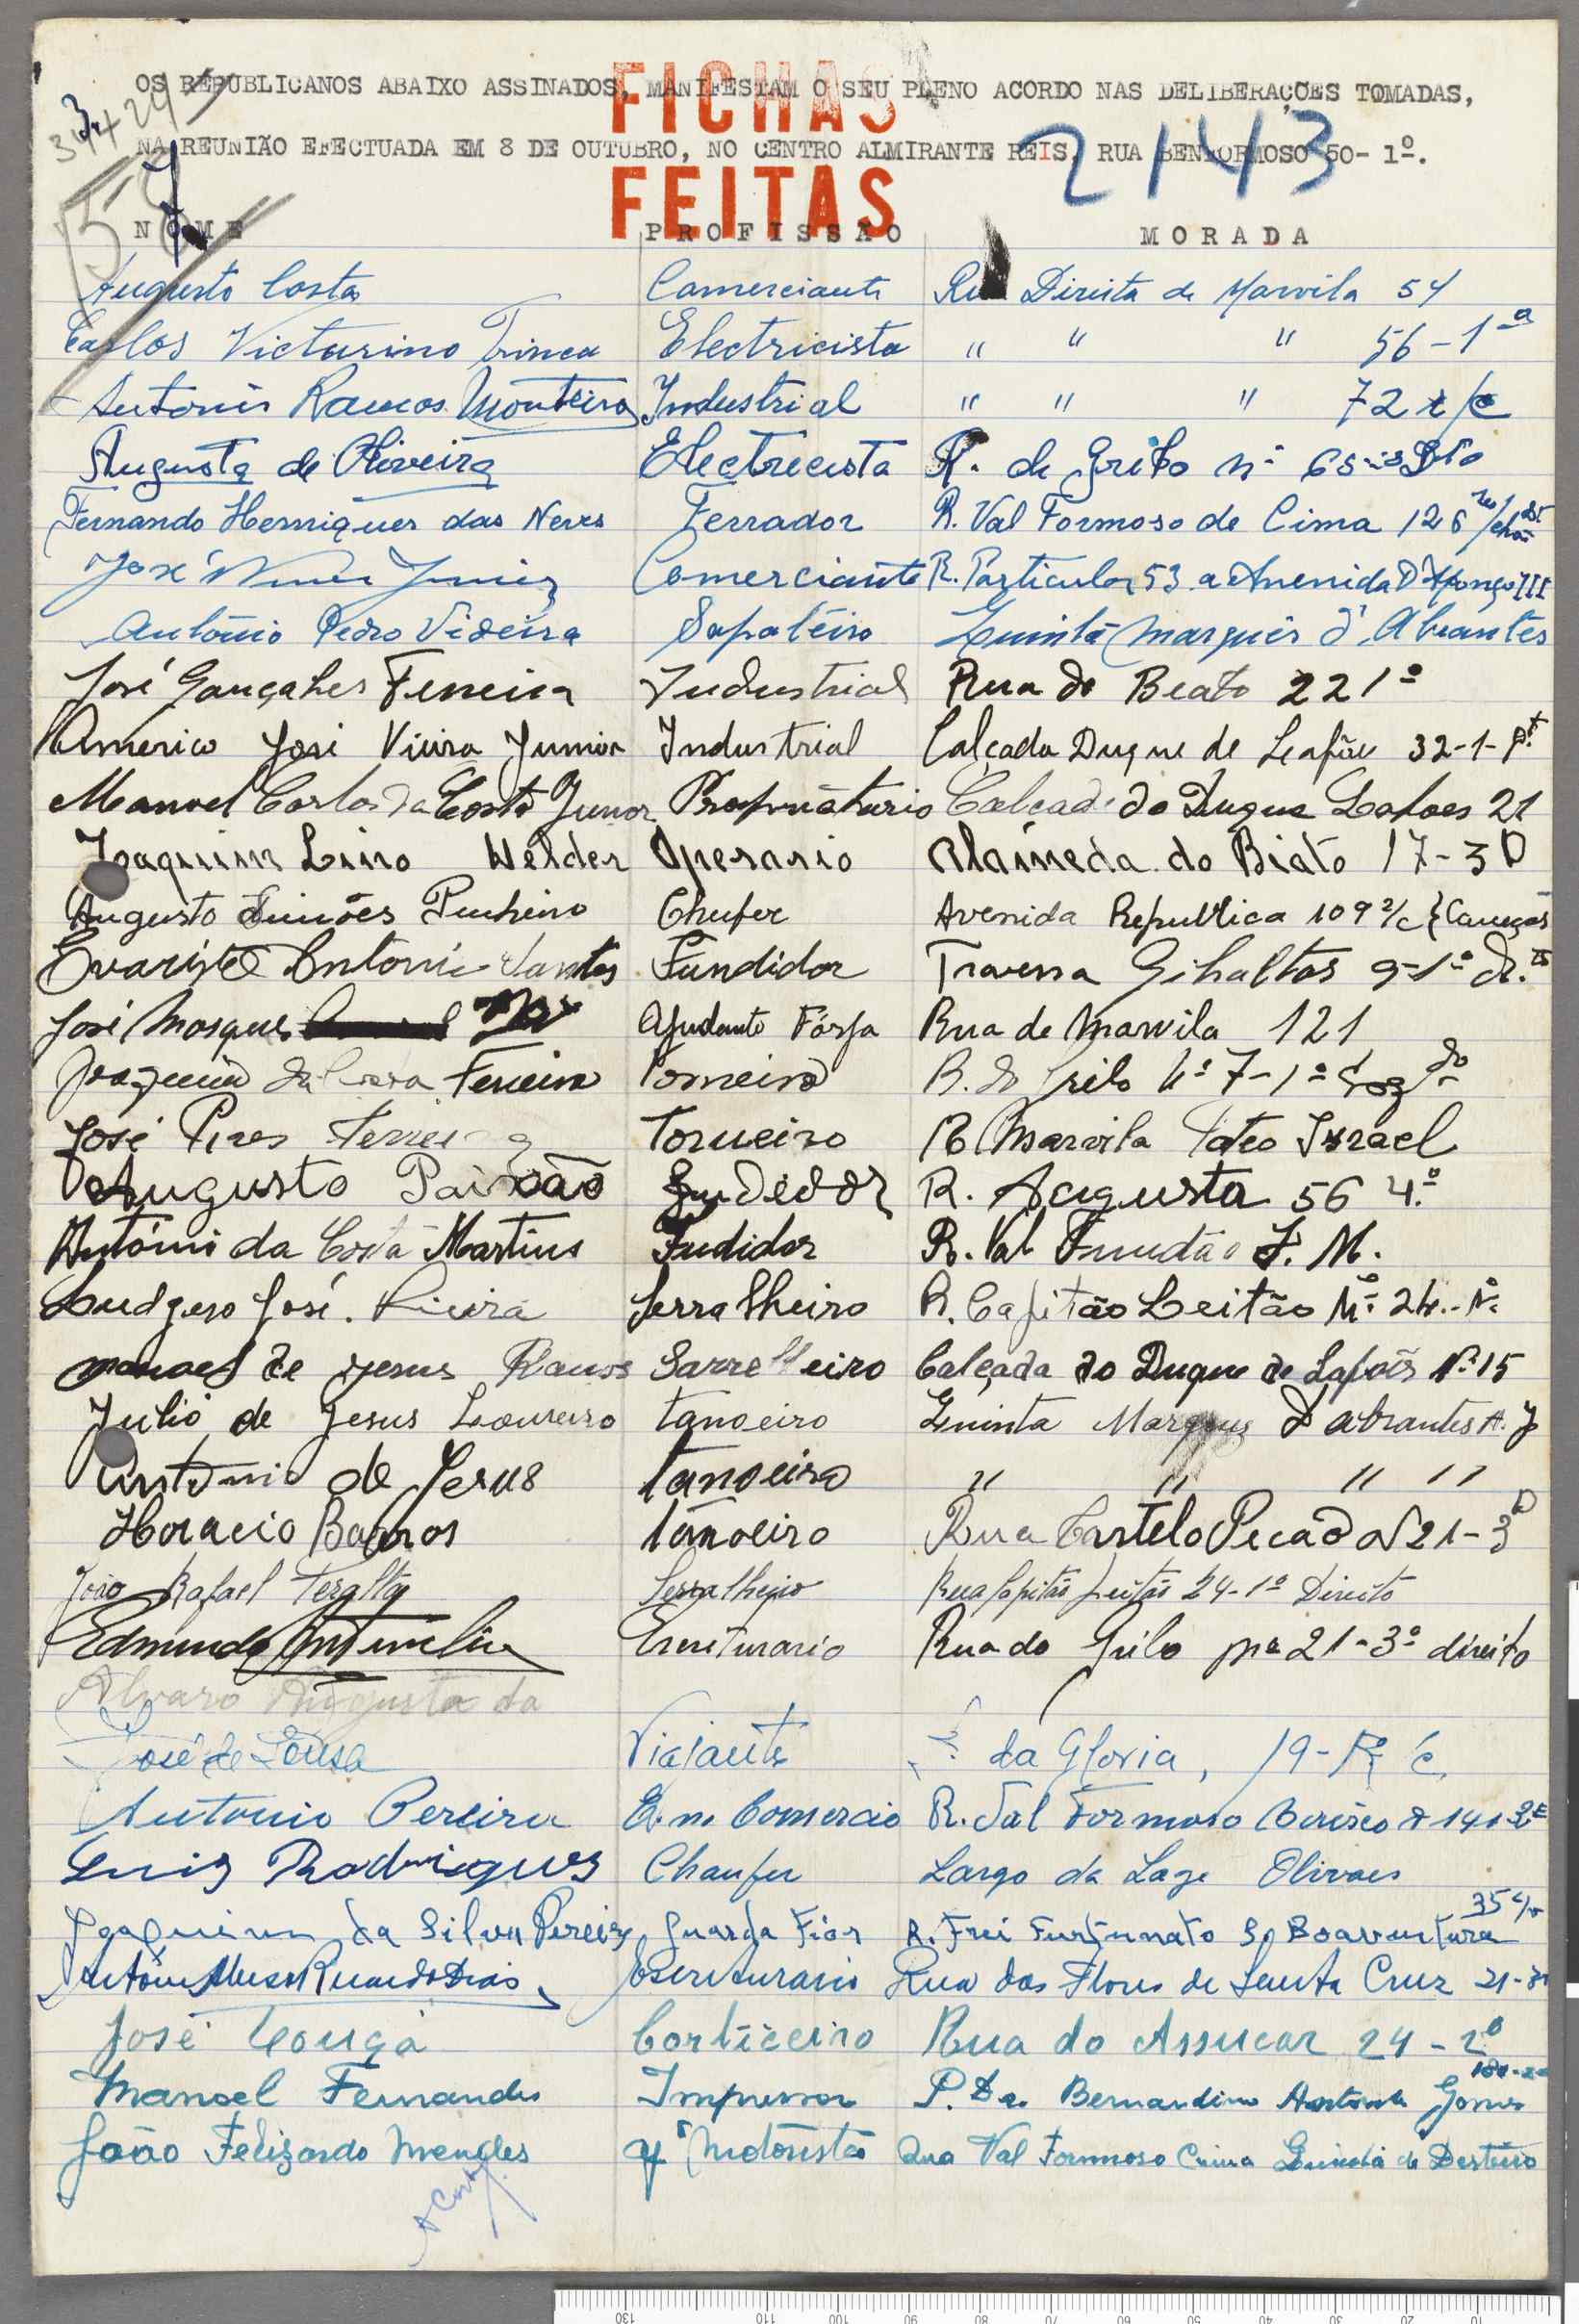 OS REPUBLICANOS ABAIXO ASSINADOS, MANIFESTAM O SEU PLENO ACORDO NAS DELIBERAÇÕES TOMADAS,
FICHAS
NA REUNIÃO EFECTUADA EM 8 DE OUTUBRO, NO CENTRO ALMIRANTE REIS, RUA BENFORMOSO 50- 1º.
2143
FEITAS
NOME PROFISSÃO MORADA
Augusto Costa Comerciante Rua Direita de Marvila 54
Carlos Victurino Trinca Electricista " " " 56-1º
Antonio Ramos Monteiro Industrial " " " 72 r/c
Augusto de Oliveira Electrecista R. de Grilo nº 65
Fernando Henriques das Neves Ferrador R. Val Formoso de Cima 126
José Comerciante R. Particular 53 a Avenida D Afonço III
António Pedro Videira Sapateiro Quinta Marquês d'Abrantes
José Gonçalves Ferreira Industrial Rua do Beato 22 1º
Americo José Vieira Junior Industrial Calçada Duque de Lafões 32-1-
Manuel Carlos da Costa Junor Propriatario Calcada do Duque Lafoes 21
Joaquim Lino Helder Operario Alaimeda do Biato 17-3 D
Augusto Simões Pinheiro Chufer Avenida Republica 109
Evaristo Antonio Santos Fundidor Travessa Gihaltas 9-1º
José Mosques Ajudante Forja Rua de Marvila 121
Joaquim da Ferreira Torneiro R. do Grilo Nº 7-1º
José Pires Ferreira Torneiro R Marvila Pateo Israel
Augusto Paixão Fudedor R. Augusta 56 4.º
António da Costa Martins Fudidor R. Val Fundão J. M.
Ludgero José Vieira Serralheiro R. Capitão Leitão Nº 24
Manoel de Jesus Ramos Sarralheiro Calçada do Duque de Lafois Nº 15
Julio de Jesus Loureiro tanoeiro Quinta Marques D abrantes A. J
Antonio de Jesus tanoeiro " " " "
Horacio Barros tanoeiro Rua Castelo Picado 21-3º
João Rafael Teralta Serralheiro Rua Capitão Leitão 24-1º Direito
Edmundo Escriturario Rua do Grilo nº 21-3º direito
Alvaro Augusto da
José de Sousa Viajante da Gloria, 19-
Antonio Pereira E. no Comercio R. Val Formoso 141
Luis Rodrigues Chaufer Largo da Lage Olivaes
Joaquim da Silva Pereira Guarda Fios R. Frei Furtunato S. Boaventura 35
António Ricardo Dias Escriturario Rua das Flores de Santa Cruz 21-
José Couça Corticeiro Rua do Assucar 24 - 2º
Manoel Fernandes Impressor P. Dr. Bernardino Antonio Gomes
João Felizardo Mendes Motorista Rua Val Formoso Cima Quinta do Desterro